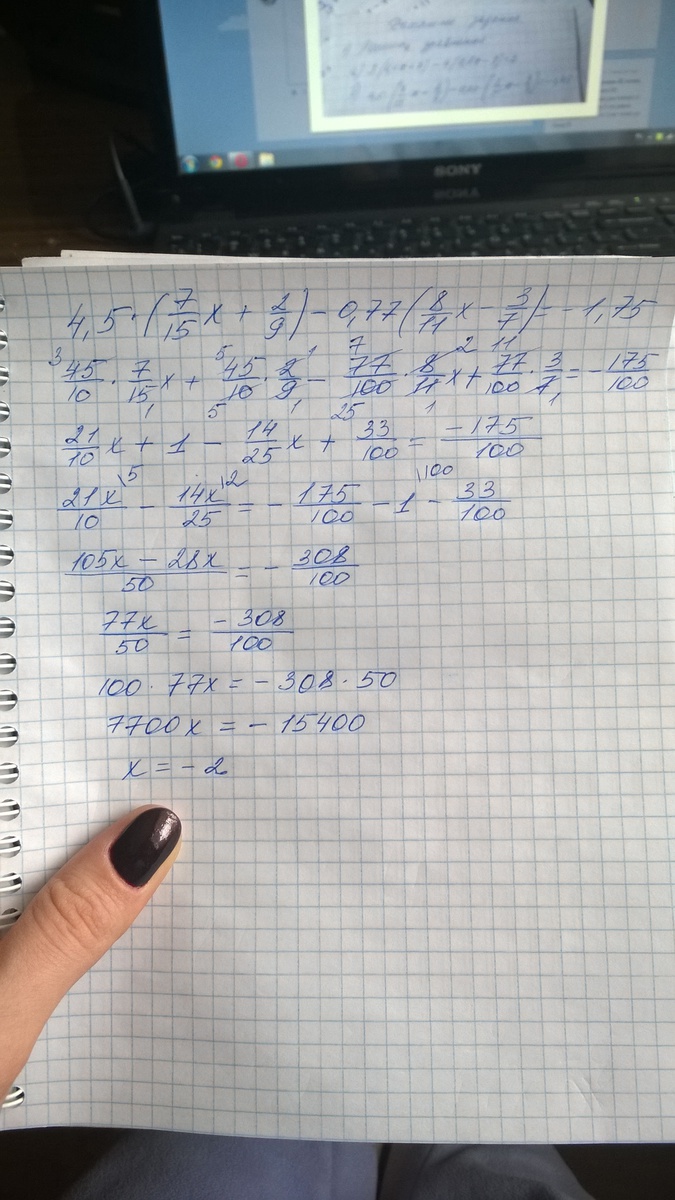 SONY
4,5·(7/15x + 2/9) - 0,77(8/11x - 3/7) = -1,75
45/10 · 7/15x + 45/10 · 2/9 - 77/100 · 8/11x + 77/100 · 3/7 = -175/100
21/10x + 1 - 14/25x + 33/100 = -175/100
21x/10 \5 - 14x/25 \2 = -175/100 - 1 \100 - 33/100
105x - 28x/50 = -308/100
77x/50 = -308/100
100 · 77x = -308 · 50
7700x = -15400
x = -2